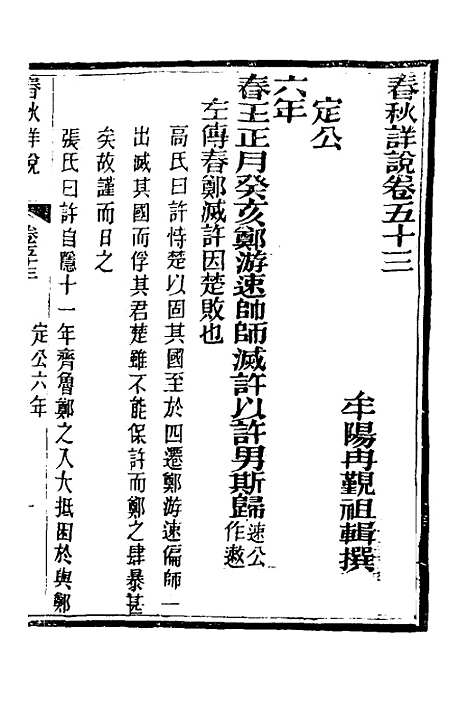 春秋詳說卷五十三
牟陽冉覲祖輯撰
定公
六年
春王正月癸亥鄭游速帥師滅許以許男斯歸速公作遬
左傳春鄭滅許因楚敗也
高氏曰許恃楚以固其國至於四遷鄭游速偏師一
出滅其國而俘其君楚雖不能保許而鄭之肆暴甚
矣故謹而日之
張氏曰許自隱十一年齊魯鄭之入大抵困於與鄭
春秋詳說
卷五十三
定公六年
一